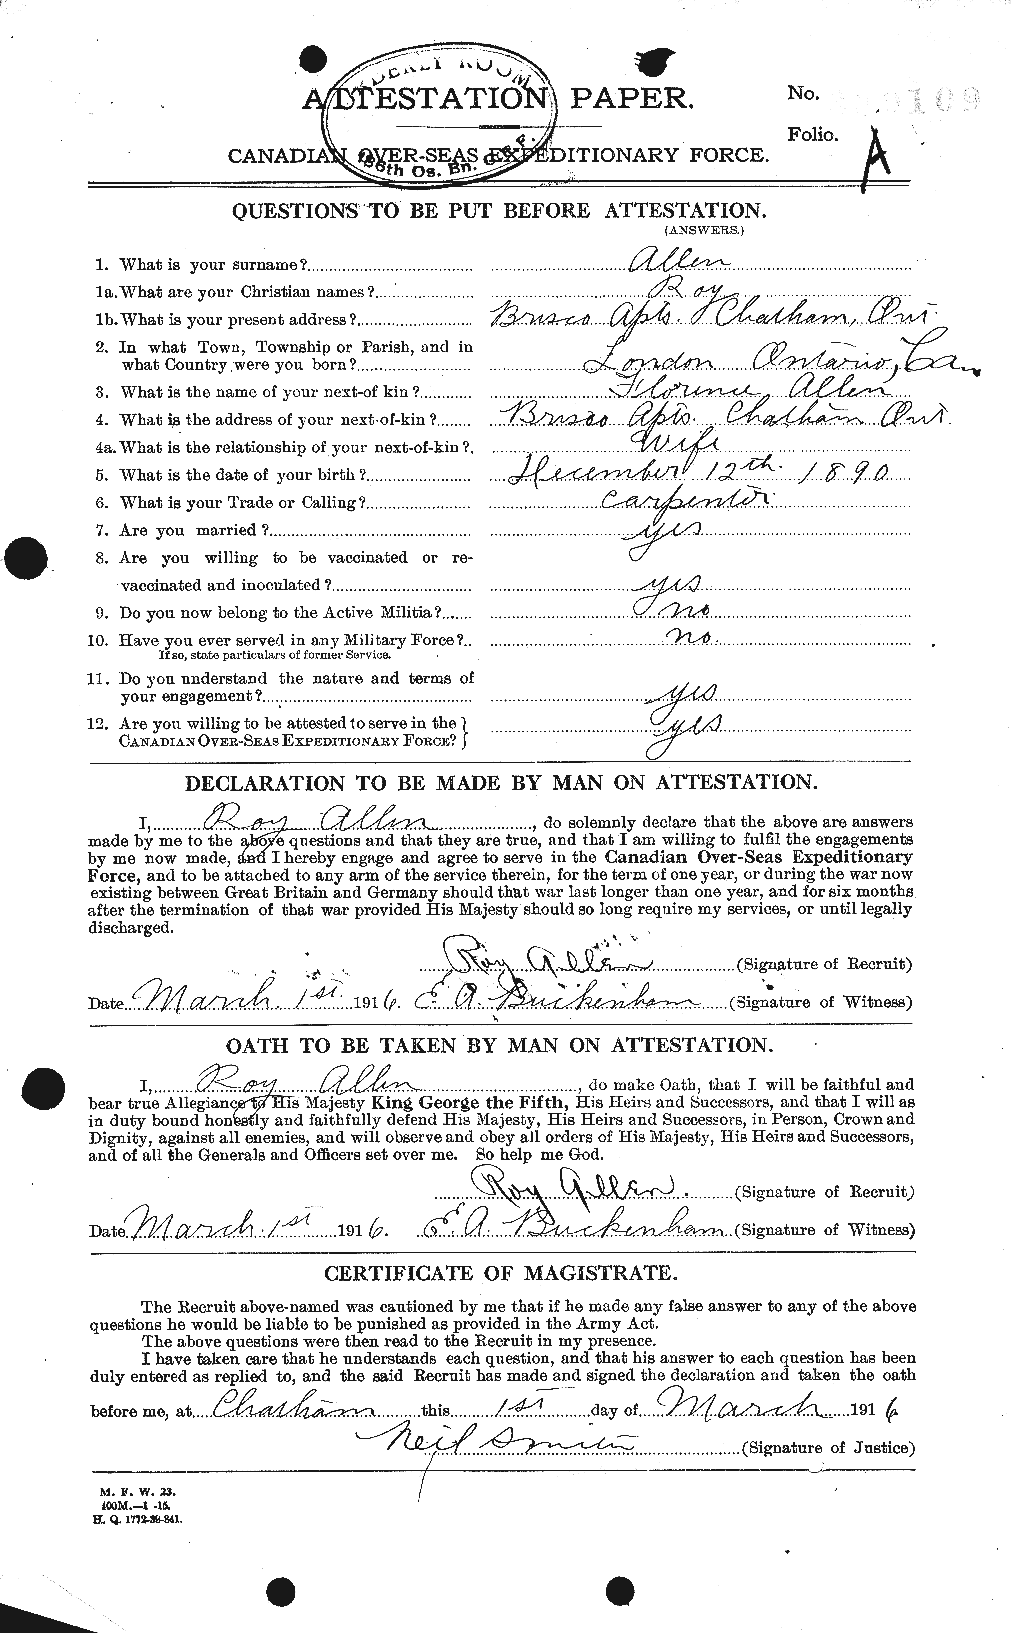 ORDERLY ROOM
ATTESTATION PAPER.
No.
Folio. A
CANADIAN OVER-SEAS EXPEDITIONARY FORCE.
186th Os. Bn. C.E.F.
QUESTIONS TO BE PUT BEFORE ATTESTATION.
(ANSWERS.)
1. What is your surname? Allen
1a. What are your Christian names? Roy
1b. What is your present address? Brisco Apts. Chatham, Ont.
2. In what Town, Township or Parish, and in
what Country were you born? London Ontario, Can
3. What is the name of your next-of kin? Florence Allen
4. What is the address of your next-of-kin? Brisco Apts. Chatham Ont.
4a. What is the relationship of your next-of-kin? Wife
5. What is the date of your birth? December 12th. 1890
6. What is your Trade or Calling? Carpenter
7. Are you married? yes
8. Are you willing to be vaccinated or re-
vaccinated and inoculated? yes
9. Do you now belong to the Active Militia? no
10. Have you ever served in any Military Force? no.
If so, state particulars of former Service.
11. Do you understand the nature and terms of
your engagement? yes
12. Are you willing to be attested to serve in the
CANADIAN OVER-SEAS EXPEDITIONARY FORCE? yes
DECLARATION TO BE MADE BY MAN ON ATTESTATION.
I, Roy Allen, do solemnly declare that the above are answers
made by me to the above questions and that they are true, and that I am willing to fulfil the engagements
by me now made, and I hereby engage and agree to serve in the Canadian Over-Seas Expeditionary
Force, and to be attached to any arm of the service therein, for the term of one year, or during the war now
existing between Great Britain and Germany should that war last longer than one year, and for six months
after the termination of that war provided His Majesty should so long require my services, or until legally
discharged.
Roy Allen (Signature of Recruit)
Date March 1st 1916. E. A. Buckenham (Signature of Witness)
OATH TO BE TAKEN BY MAN ON ATTESTATION.
I, Roy Allen, do make Oath, that I will be faithful and
bear true Allegiance to His Majesty King George the Fifth, His Heirs and Successors, and that I will as
in duty bound honestly and faithfully defend His Majesty, His Heirs and Successors, in Person, Crown and
Dignity, against all enemies, and will observe and obey all orders of His Majesty, His Heirs and Successors,
and of all the Generals and Officers set over me. So help me God.
Roy Allen. (Signature of Recruit)
Date March 1st 1916. E. A. Buckenham (Signature of Witness)
CERTIFICATE OF MAGISTRATE.
The Recruit above-named was cautioned by me that if he made any false answer to any of the above
questions he would be liable to be punished as provided in the Army Act.
The above questions were then read to the Recruit in my presence.
I have taken care that he understands each question, and that his answer to each question has been
duly entered as replied to, and the said Recruit has made and signed the declaration and taken the oath
before me, at Chatham this 1st day of March 1916
Neil Smith (Signature of Justice)
M. F. W. 23.
400M.—1-15.
H. Q. 1772-39-841.